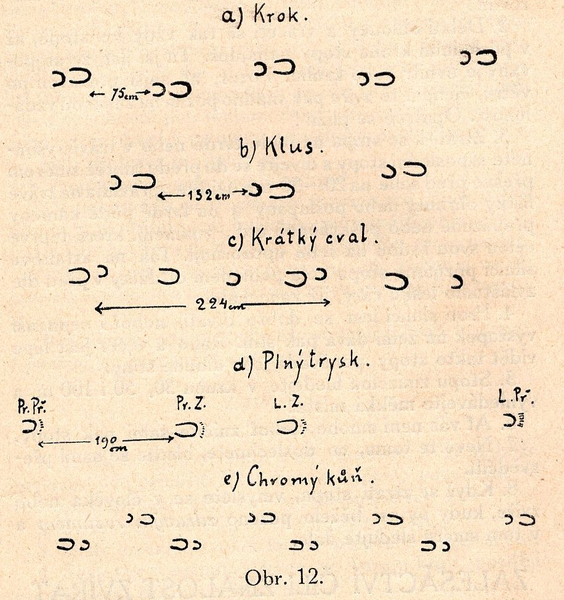 a) Krok.
75cm
b) Klus.
132cm
c) Krátký cval.
224cm
d) Plný trysk.
Pr.Př. Pr.Z. L.Z. L.Př.
190
cm
e) Chromý kůň.
Obr. 12.